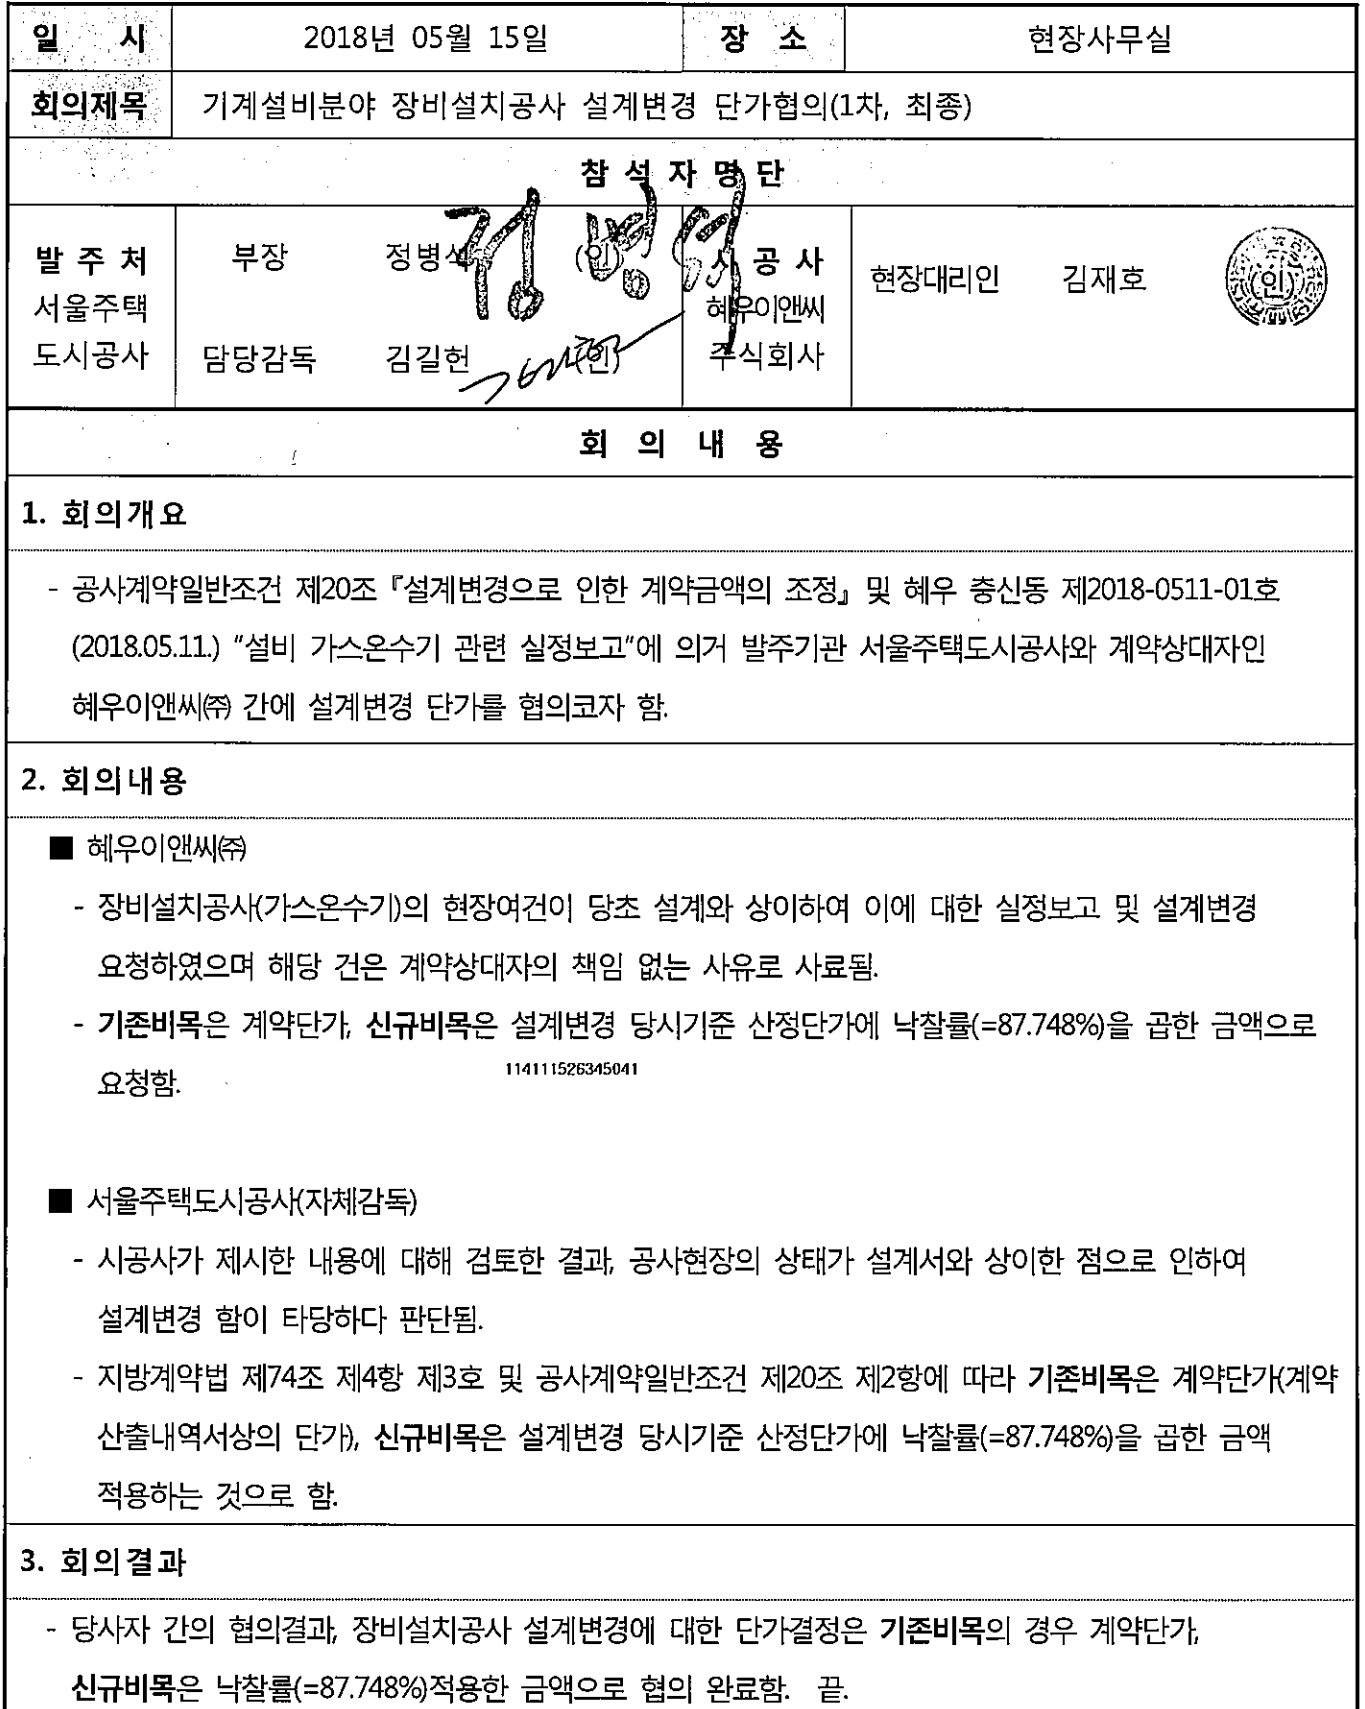 일 시 2018년 05월 15일 장 소 현장사무실
회의제목 기계설비분야 장비설치공사 설계변경 단가협의(1차, 최종)
참 석 자 명 단
발 주 처 부장 정병석 (인) 시 공 사 현장대리인 김재호 (인)
서울주택 혜우이앤씨
도시공사 담당감독 김길헌 (인) 주식회사
정병석
회 의 내 용
1. 회의개요
- 공사계약일반조건 제20조 『설계변경으로 인한 계약금액의 조정』 및 혜우 충신동 제2018-0511-01호
(2018.05.11.) “설비 가스온수기 관련 실정보고”에 의거 발주기관 서울주택도시공사와 계약상대자인
혜우이앤씨㈜ 간에 설계변경 단가를 협의코자 함.
2. 회의내용
■ 혜우이앤씨㈜
- 장비설치공사(가스온수기)의 현장여건이 당초 설계와 상이하여 이에 대한 실정보고 및 설계변경
요청하였으며 해당 건은 계약상대자의 책임 없는 사유로 사료됨.
- 기존비목은 계약단가, 신규비목은 설계변경 당시기준 산정단가에 낙찰률(=87.748%)을 곱한 금액으로
요청함.
114111526345041
■ 서울주택도시공사(자체감독)
- 시공사가 제시한 내용에 대해 검토한 결과, 공사현장의 상태가 설계서와 상이한 점으로 인하여
설계변경 함이 타당하다 판단됨.
- 지방계약법 제74조 제4항 제3호 및 공사계약일반조건 제20조 제2항에 따라 기존비목은 계약단가(계약
산출내역서상의 단가), 신규비목은 설계변경 당시기준 산정단가에 낙찰률(=87.748%)을 곱한 금액
적용하는 것으로 함.
3. 회의결과
- 당사자 간의 협의결과, 장비설치공사 설계변경에 대한 단가결정은 기존비목의 경우 계약단가,
신규비목은 낙찰률(=87.748%)적용한 금액으로 협의 완료함. 끝.